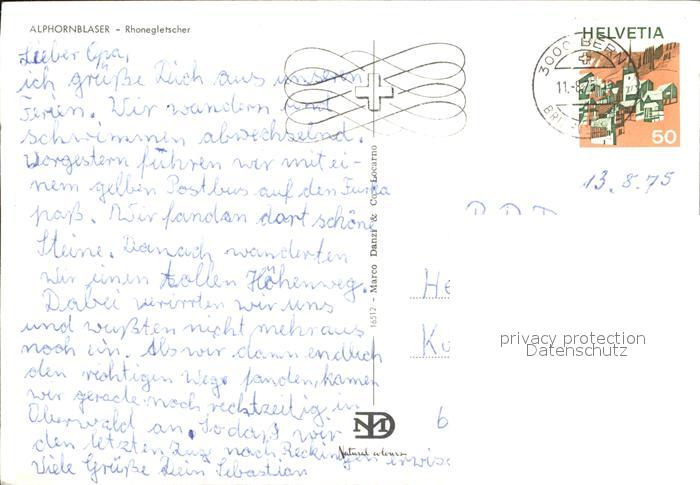 ALPHORNBLASER – Rhonegletscher
Lieber Opa,
ich grüße Dich aus unseren
Ferien. Wir wandern und
schwimmen abwechselnd.
Vorgestern führen wir mit ei-
nem gelben Postbus auf den Furka
paß. Wir fanden dort schöne
Steine. Danach wanderten
wir einen tollen Höhenweg.
Dabei verirrten wir uns
und wußten nicht mehr aus
noch ein. Als wir dann endlich
den richtigen Wege fanden, kamen
wir gerade noch rechtzeitig in
Oberwald an. Sodaß wir
den letzten Zug nach Reckingen erwisc
Viele Grüße Dein Sebastian
16512 – Marco Danzi & Co. – Locarno
Natural colours
HELVETIA
50
3000 BERN
13.8.75
He
Ku
6
privacy protection
Datenschutz